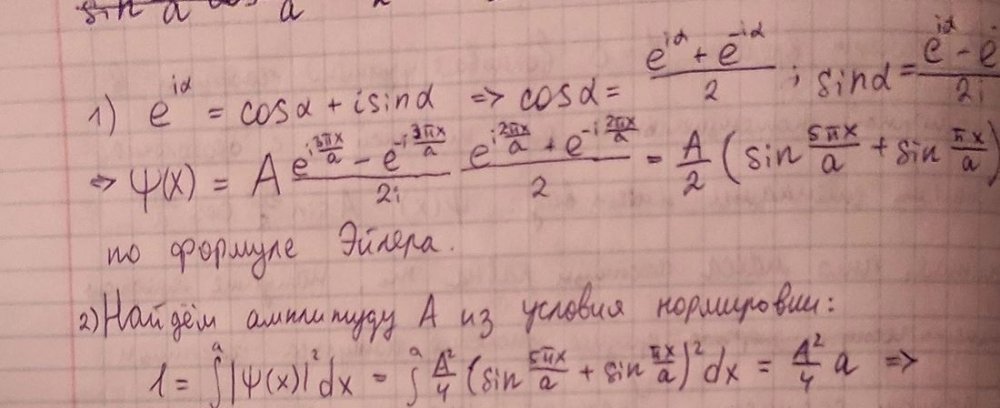 sin a cos a 2
1) e^{iα} = cosα + isinα => cosα = (e^{iα} + e^{-iα})/2 ; sinα = (e^{iα} - e^{-})/2i
=> ψ(x) = A (e^{i3πx/a} - e^{-i3πx/a})/2i (e^{i2πx/a} + e^{-i2πx/a})/2 = A/2 (sin 5πx/a + sin πx/a)
по формуле Эйлера.
2) Найдём амплитуду A из условия нормировки:
1 = ∫^a |ψ(x)|² dx = ∫^a A²/4 (sin 5πx/a + sin πx/a)² dx = A²/4 a =>